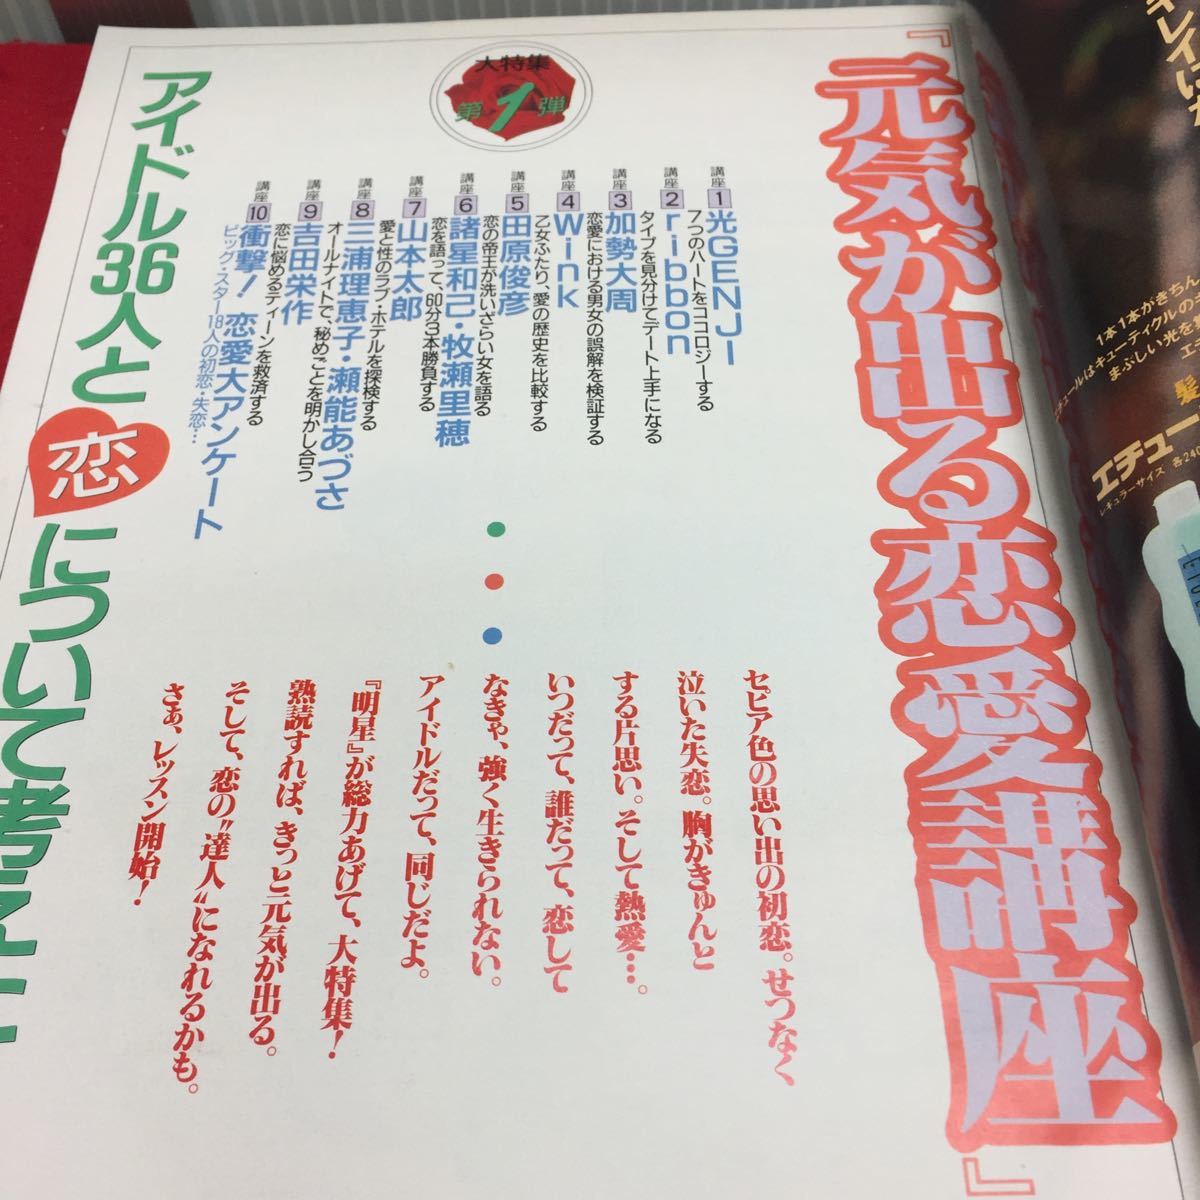 『元気が出る恋愛講座』
大特集
第1弾
講座1 光GENJI
7つのハートをココロジーする
講座2 ribbon
タイプを見分けてデート上手になる
講座3 加勢大周
恋愛における男女の誤解を検証する
講座4 Wink
乙女ふたり、愛の歴史を比較する
講座5 田原俊彦
恋の帝王が洗いざらい女を語る
講座6 諸星和己・牧瀬里穂
恋を語って、60分3本勝負する
講座7 山本太郎
愛と性のラブ・ホテルを探検する
講座8 三浦理恵子・瀬能あづさ
オールナイトで、秘めごとを明かし合う
講座9 吉田栄作
恋に悩めるティーンを救済する
講座10 衝撃!恋愛大アンケート
ビッグ・スター18人の初恋・失恋…
セピア色の思い出の初恋。せつなく
泣いた失恋。胸がきゅんと
する片思い。そして熱愛…。
いつだって、誰だって、恋して
なきゃ、強く生きられない。
アイドルだって、同じだよ。
『明星』が総力あげて、大特集!
熟読すれば、きっと元気が出る。
そして、恋の〝達人〟になれるかも。
さぁ、レッスン開始!
アイドル36人と恋について考え
キレイに
1本1本がきちん
ールはキューティクルの
まぶしい光を
エチ
髪
エチュー
レギュラーサイズ 各240